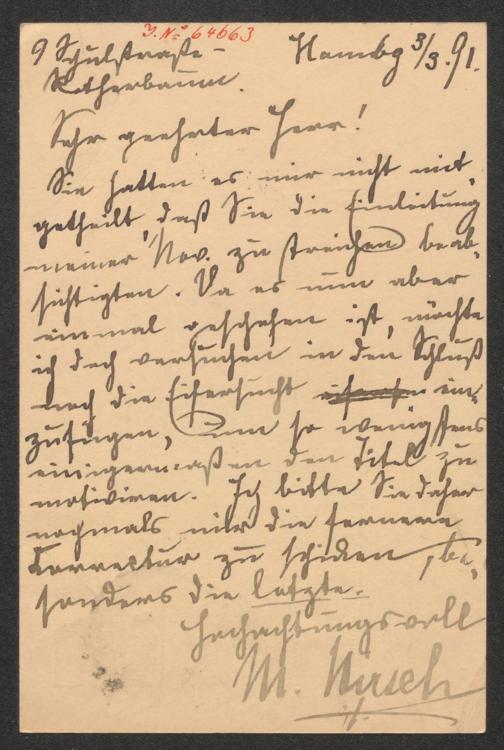 J. No 64663
9 Schulstraße-
Rotherbaum.
Hambg 3/3.91.
Sehr geehrter Herr!
Sie hatten es mir nicht mit-
getheilt daß Sie die Einleitung
meiner Nov. zu streichen beab-
sichtigten. Da es nun aber
einmal geschehen ist, möchte
ich doch versuchen in den Schluß
noch die Eifersucht ein-
zufügen, um so wenigstens
einigermaßen den Titel zu
motiviren. Ich bitte Sie daher
nochmals mir die fernere
Correctur zu schicken, be-
sonders die letzte.
Hochachtungsvoll
M. Hirsch